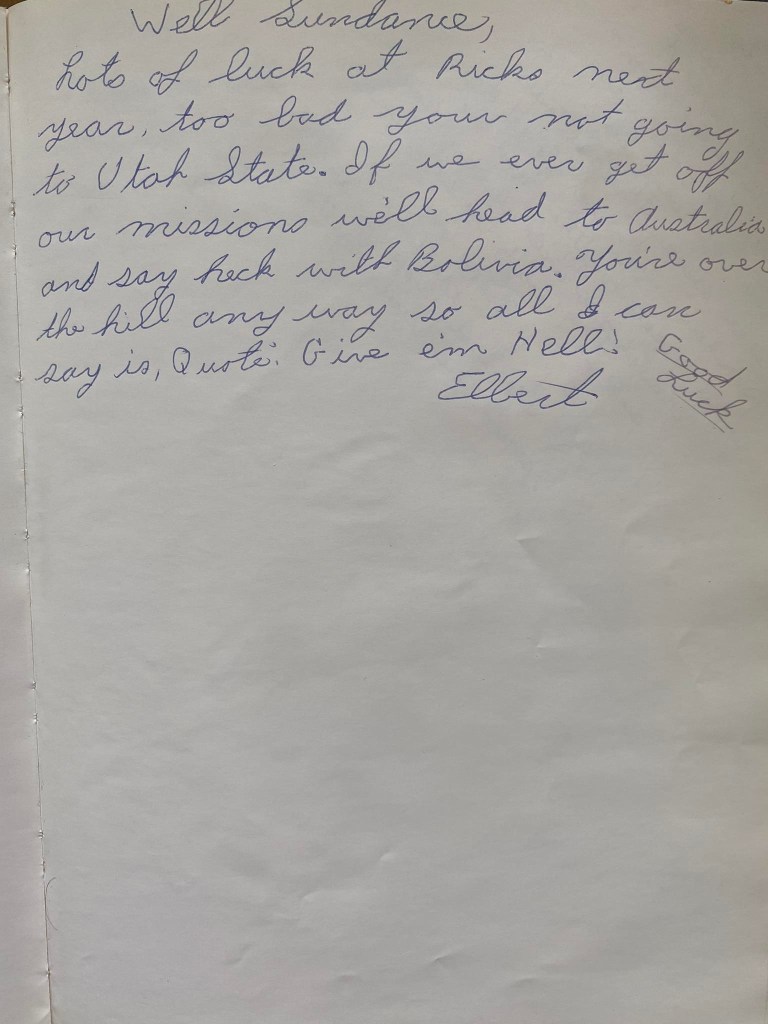 Well Sundance,
Lots of luck at Ricks next
year, too bad your not going
to Utah State. If we ever get off
our missions we'll head to Australia
and say heck with Bolivia. You're over
the hill any way so all I can
say is, Quote: Give em Hell!
Elbert
Good
Luck